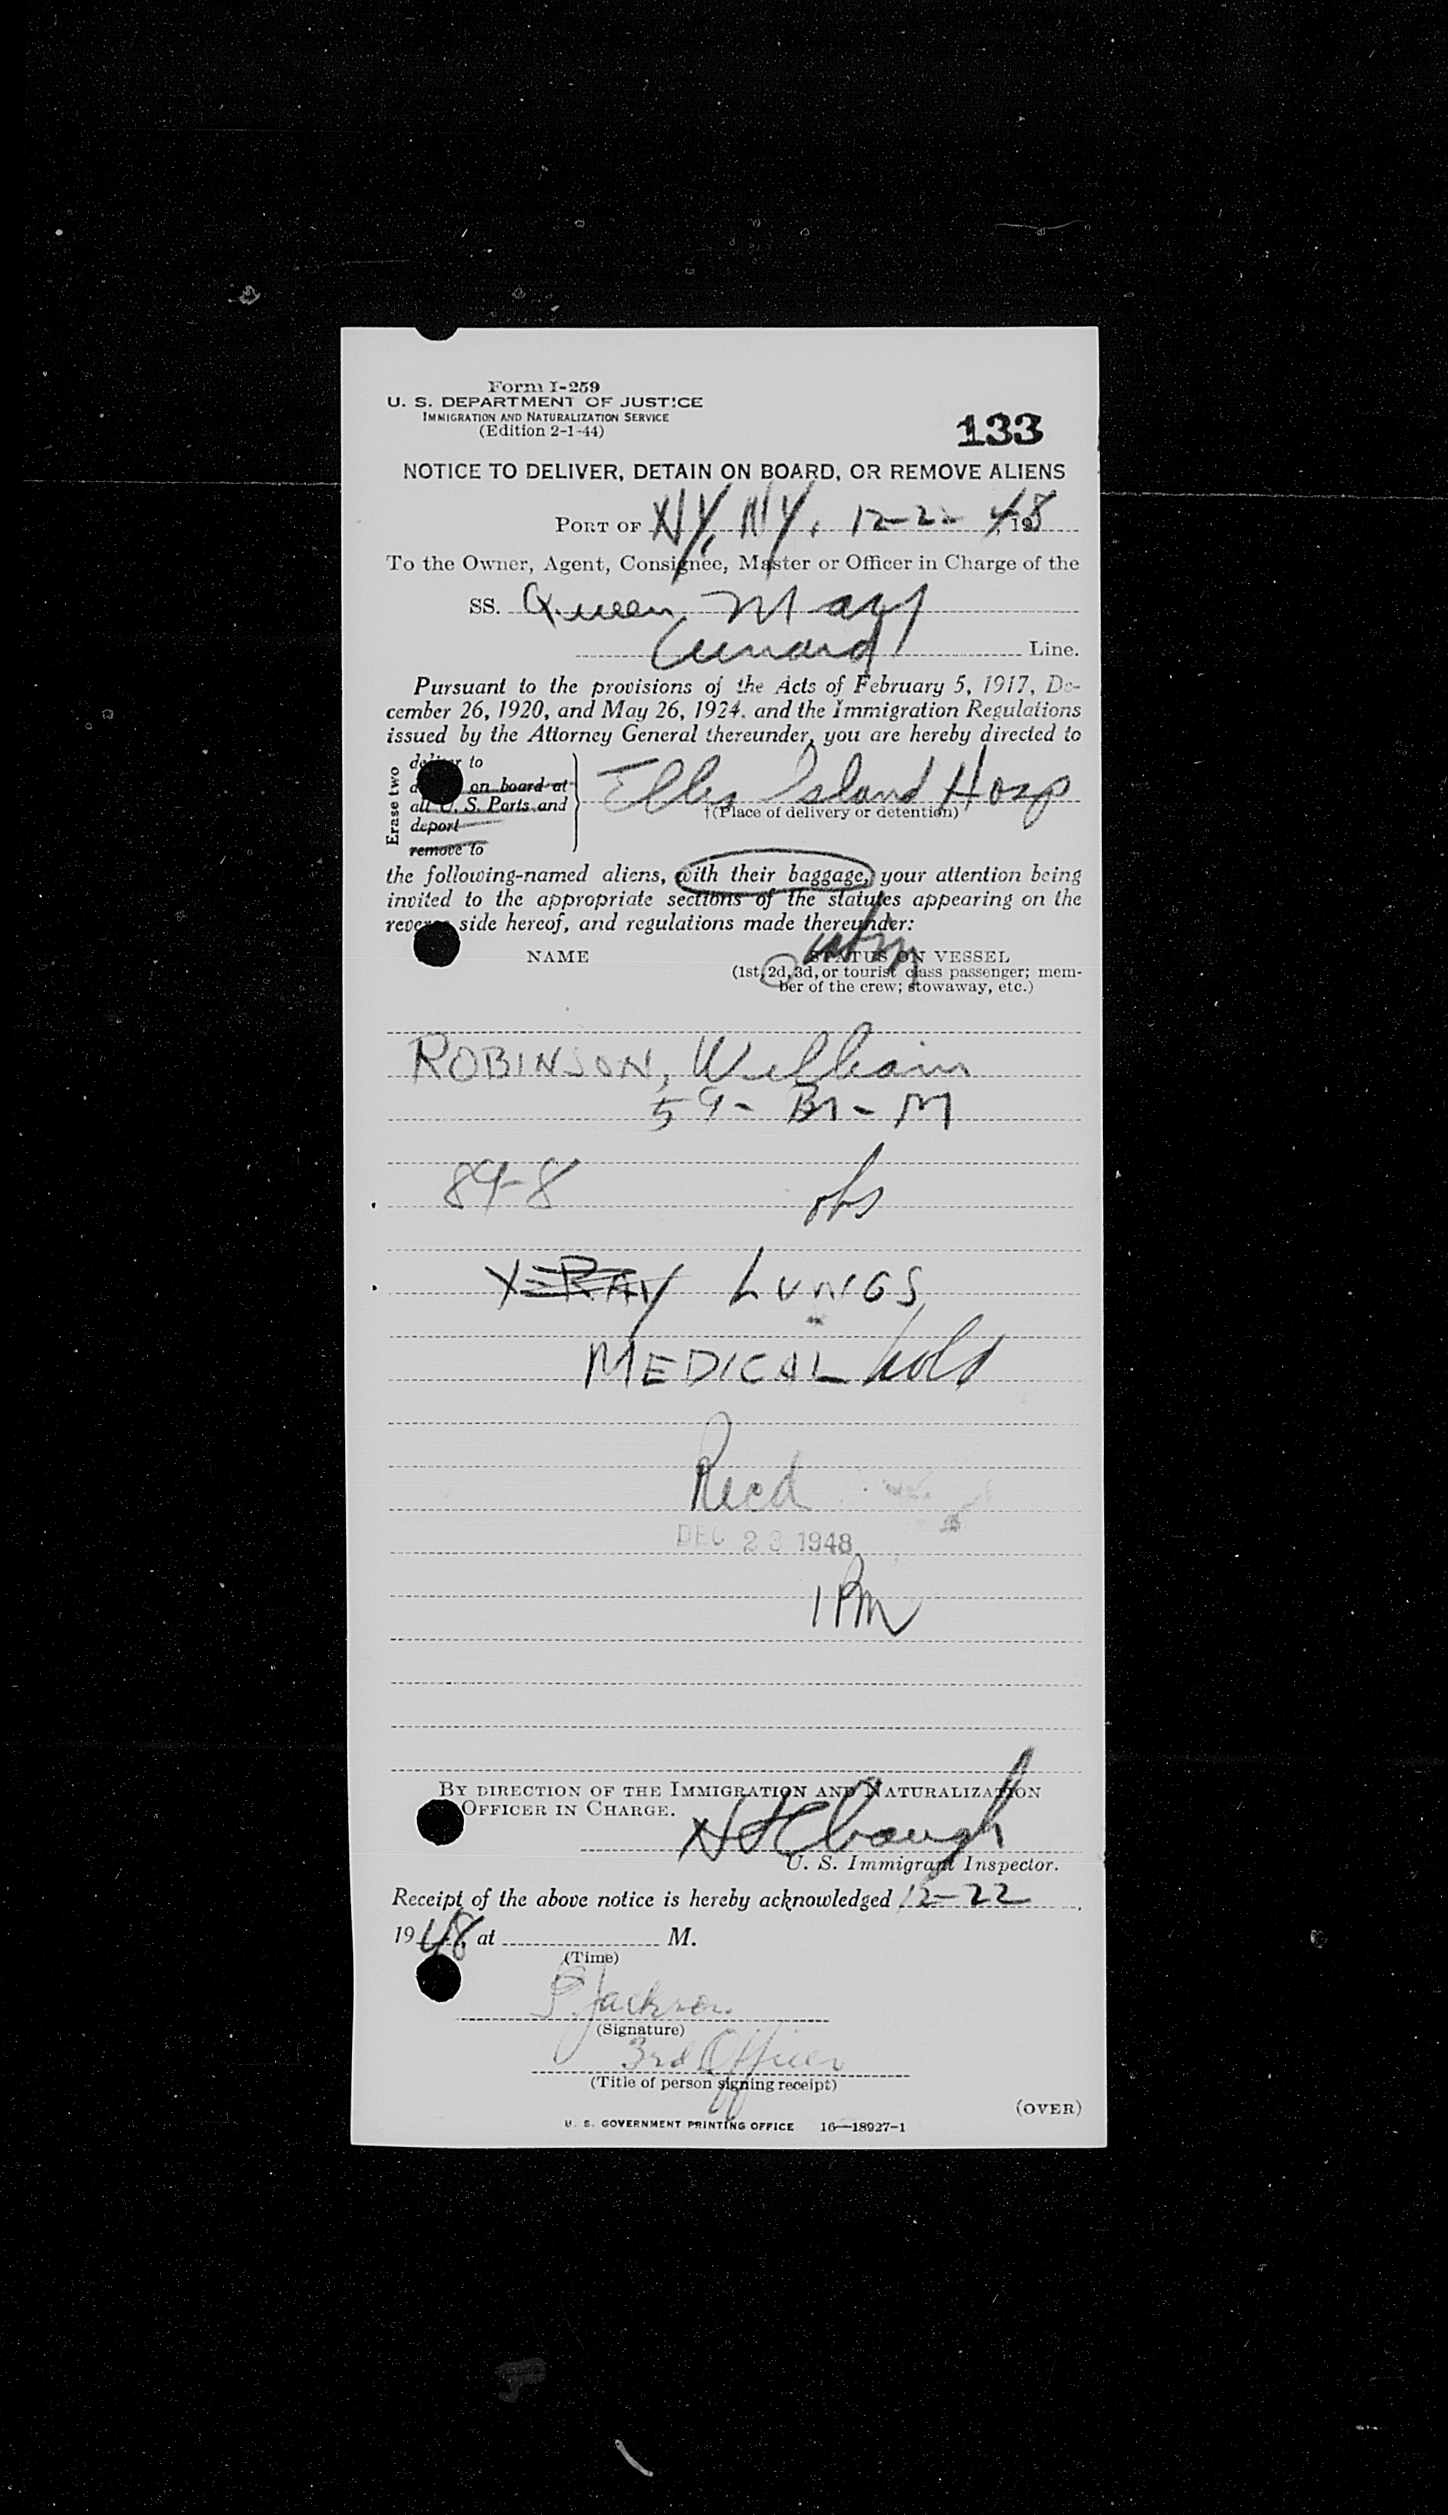 Form I-259
U. S. DEPARTMENT OF JUSTICE
IMMIGRATION AND NATURALIZATION SERVICE
(Edition 2-1-44)
133
NOTICE TO DELIVER, DETAIN ON BOARD, OR REMOVE ALIENS
PORT OF NY, NY, 12-22- 48, 19
To the Owner, Agent, Consignee, Master or Officer in Charge of the
SS. Queen Mary
Cunard Line.
Pursuant to the provisions of the Acts of February 5, 1917, De-
cember 26, 1920, and May 26, 1924, and the Immigration Regulations
issued by the Attorney General thereunder, you are hereby directed to
Erase two
deliver to
on board at
all U. S. Ports and
deport
remove to
Ellis Island Hosp
†(Place of delivery or detention)
the following-named aliens, with their baggage, your attention being
invited to the appropriate sections of the statutes appearing on the
reverse side hereof, and regulations made thereunder:
NAME
STATUS ON VESSEL
(1st, 2d, 3d, or tourist class passenger; mem-
ber of the crew; stowaway, etc.)
ROBINSON, William
59- Br - M
89-8 obs
X-RAY LUNGS
MEDICAL hold
Recd
DEC 23 1948
1 PM
BY DIRECTION OF THE IMMIGRATION AND NATURALIZATION
OFFICER IN CHARGE.
U. S. Immigrant Inspector.
Receipt of the above notice is hereby acknowledged 12-22
1948, at M.
(Time)
Jackson
(Signature)
3rd Officer
(Title of person signing receipt)
(OVER)
U. S. GOVERNMENT PRINTING OFFICE 16—18927-1